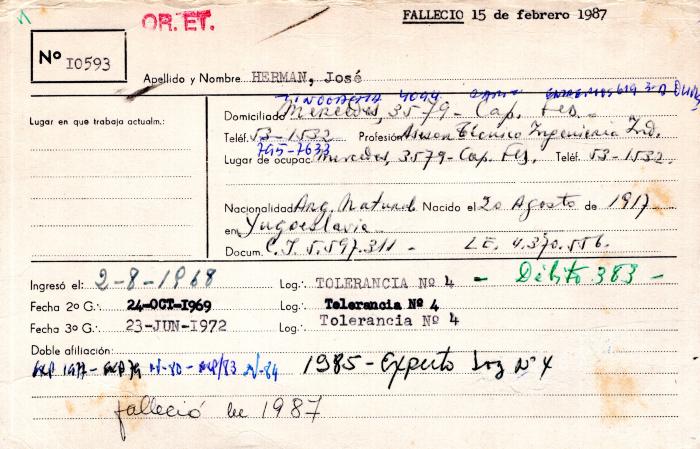 FALLECIO 15 de febrero 1987
OR. ET.
Nº 10593
Apellido y Nombre HERMAN, José
4044
Lugar en que trabaja actualm.:
Domiciliado Mercedes, 3579 - Cap. Fed.
Teléf. 53-1532 Profesión Asesor Técnico Ingeniería Ind.
795-7633
Lugar de ocupac. Mercedes, 3579 - Cap. Fed. Teléf. 53-1532
Nacionalidad Arg. Natural. Nacido el 20 Agosto de 1917
en Yugoeslavia
Docum. C.I. 5.597.311 - L.E. 4.370.556.
Ingresó el: 2-8-1968 Log.·. TOLERANCIA Nº 4 - Débito 383 -
Fecha 2º G.·. 24-OCT-1969 Log.·. Tolerancia Nº 4
Fecha 3º G.·. 23-JUN-1972 Log.·. Tolerancia Nº 4
Doble afiliación:
1977 - 79 N-80 - /83 N-84 1985 - Experto Log Nº 4
falleció en 1987